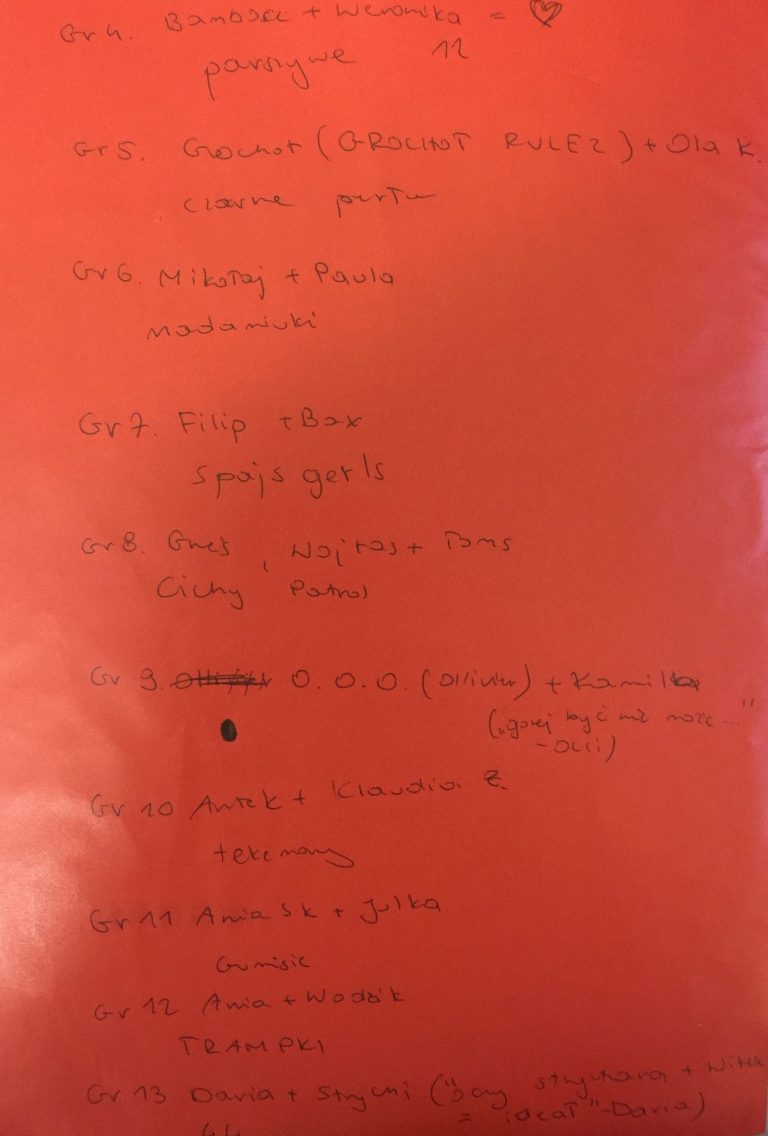 Gr 4. + Weronika = ♡
parszywe 12
Gr 5. Grochot (GROCHOT RULEZ) + Ola K.
czarne
Gr 6. Mikołaj + Paula
Gr 7. Filip + Bax
spajs gerls
Gr 8. , Wojtas +
Cichy Patrol
Gr 9. O. O. O. (Ollivier) + Kamilla
("gorzej być nie może..."
- Olli)
Gr 10 Antek + Klaudia Z.
Gr 11 Ania Sk + Julka
Gumisie
Gr 12 Ania + Wodzik
TRAMPKI
Gr 13 Daria + ("oczy + Witek
= ideał" - Daria)